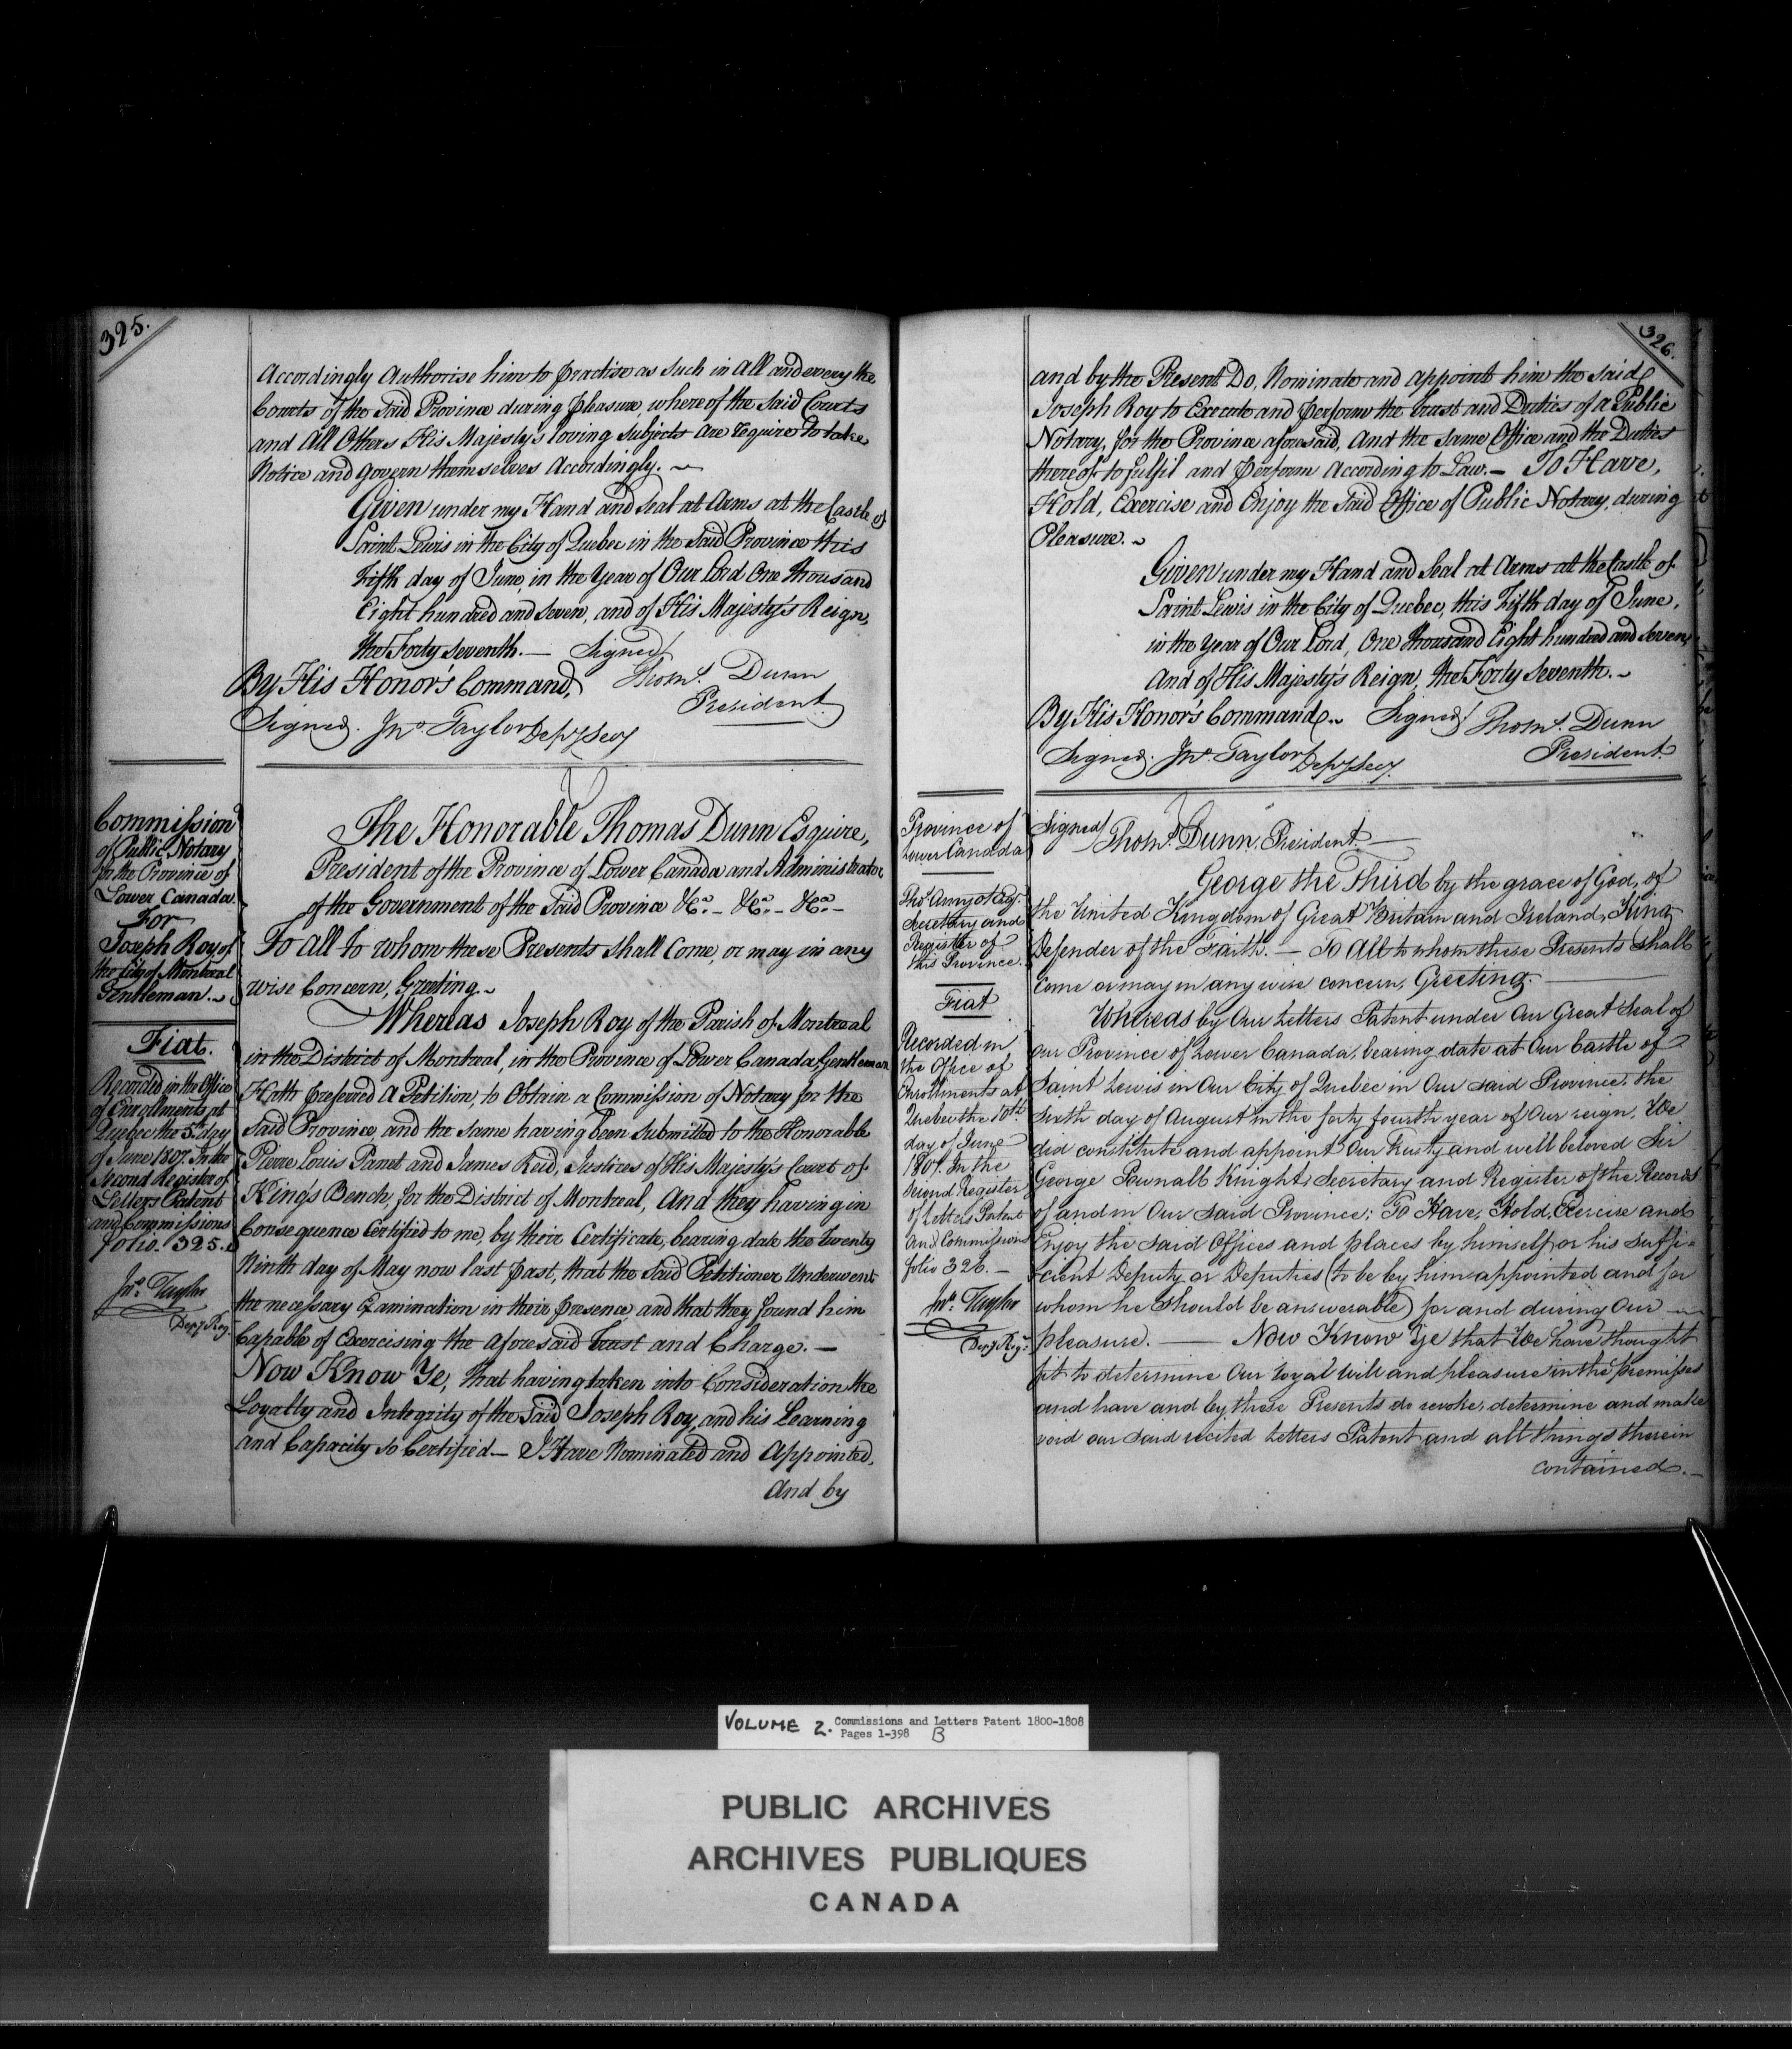 325.
Accordingly Authorise him to practise as such in All and every the
Courts of the Said Province during pleasure, whereof the Said Courts
and All Others His Majesty's loving Subjects Are required to take
Notice and Govern themselves Accordingly. ~
Given under my Hand and Seal at Arms at the Castle of
Saint Lewis in the City of Quebec in the Said Province this
Fifth day of June, in the Year of Our Lord One thousand
Eight hundred and Seven, and of His Majesty's Reign,
the Forty Seventh. — Signed
By His Honor's Command, Thoms. Dunn
President
Signed. Jno. Taylor Depy Secy
Commission
of Public Notary
for the Province of
Lower Canada
For
Joseph Roy of
the City of Montreal
Gentleman. ~
Fiat.
Recorded in the Office
of Enrollments at
Quebec the 5th day
of June 1807. In the
Second Register of
Letters Patent
and Commissions
folio. 325.
Jno. Taylor
Depy Reg.
The Honorable Thomas Dunn Esquire,
President of the Province of Lower Canada and Administrator
of the Government of the Said Province &ca. - &ca. - &ca. -
To All to whom these Presents shall Come, or may in any
wise Concern, Greeting. ~
Whereas Joseph Roy of the Parish of Montreal
in the District of Montreal, in the Province of Lower Canada, Gentleman
Hath preferred A Petition, to Obtain a Commission of Notary for the
Said Province, and the same having been Submitted to the Honorable
Pierre Louis Panet and James Reid, Justices of His Majesty's Court of
King's Bench, for the District of Montreal, And they having in
Consequence Certified to me, by their Certificate, bearing date the twenty
Ninth day of May now last past, that the Said Petitioner Underwent
the necessary Examination in their presence and that they found him
Capable of Exercising the aforesaid Trust and Charge. —
Now Know Ye, that having taken into Consideration the
Loyalty and Integrity of the Said Joseph Roy, and his Learning
and Capacity So Certified — I Have Nominated and Appointed,
And by
326.
and by the Present Do, Nominate and appoint him the said
Joseph Roy to Execute and perform the trust and Duties of a Public
Notary, for the Province aforesaid, And the same Office and the Duties
thereof to fulfil and perform According to Law. — To Have,
Hold, Exercise and Enjoy the Said Office of Public Notary, during
Pleasure. ~
Given under my Hand and Seal at Arms at the Castle of
Saint Lewis in the City of Quebec, this Fifth day of June,
in the Year of Our Lord, One thousand Eight hundred and Seven,
And of His Majesty's Reign, the Forty Seventh. ~
By His Honor's Command ~ Signed Thoms. Dunn
President
Signed. Jno. Taylor Depy Secy.
Province of
Lower Canada
Thos Amyot Esqr.
Secretary and
Register of
this Province.
Fiat
Recorded in
the Office of
Enrollments at
Quebec the 10th
day of June
1807. In the
Second Register
of Letters Patent
And Commissions
folio 326. —
Jno. Taylor
Depy Regr.
Signed Thoms. Dunn. President. —
George the Third by the grace of God, of
the United Kingdom of Great Britain and Ireland, King
Defender of the Faith. — To All to whom these Presents shall
Come or may in any wise concern, Greeting. —
Whereas by Our Letters Patent under Our Great Seal of
our Province of Lower Canada, bearing date at Our Castle of
Saint Lewis in Our City of Quebec in Our said Province, the
Sixth day of August in the forty fourth year of Our reign, We
did constitute and appoint Our trusty and well beloved Sir
George Pownall Knight, Secretary and Register of the Records
of and in Our said Province; To Have, Hold, Exercise and
Enjoy the said Offices and places by himself or his Suffi=
=cient Deputy or Deputies (to be by him appointed and for
whom he should be answerable) for and during Our ~
pleasure. — Now Know Ye that We have thought
fit to determine Our royal Will and pleasure in the premisses
and have and by these Presents do revoke, determine and make
void our said recited Letters Patent and all things therein
contained. —
VOLUME 2. Commissions and Letters Patent 1800-1808
Pages 1-398 B
PUBLIC ARCHIVES
ARCHIVES PUBLIQUES
CANADA